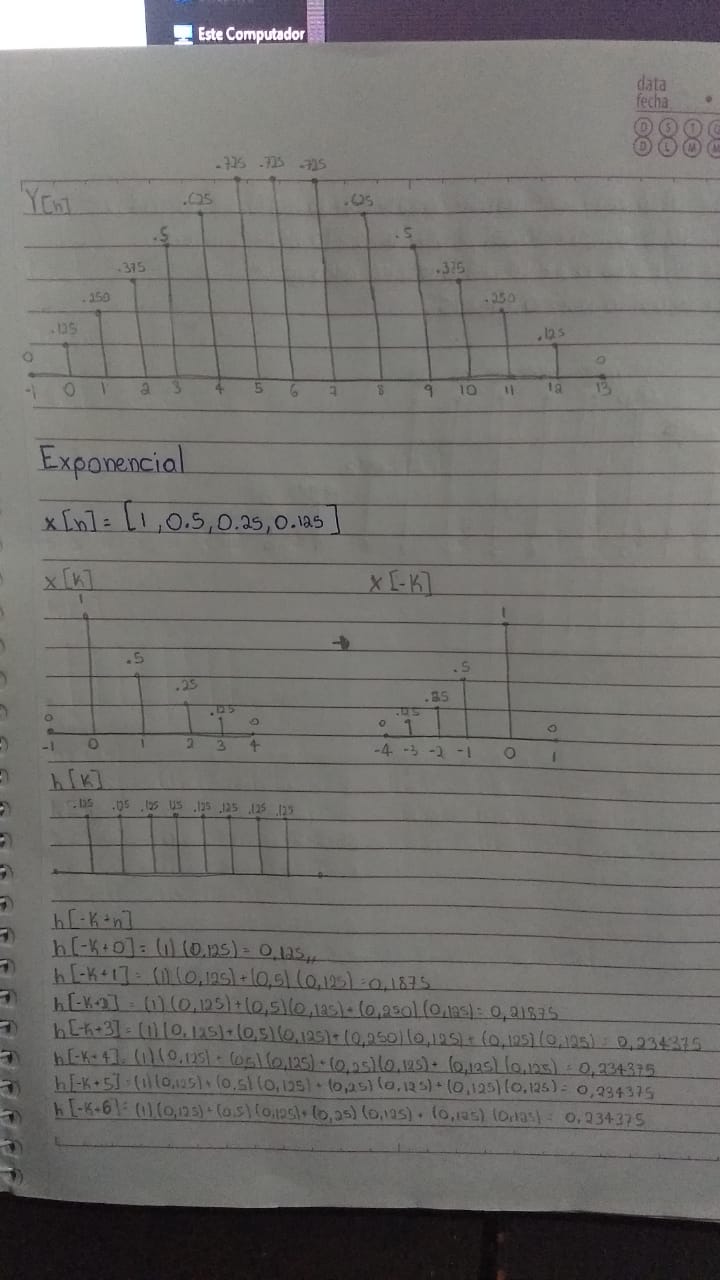 Este Computador
data
fecha
D S T
D L M M
.725 .725 .725
Y[n]
.625 .625
.5 .5
.375 .375
.250 .250
.125 .125
0 0
-1 0 1 2 3 4 5 6 7 8 9 10 11 12 13
Exponencial
x[n] = [1, 0.5, 0.25, 0.125]
x[K] x[-K]
1 1
.5 .5
.25 .25
.125 .125
0 0 0 0
-1 0 1 2 3 4 -4 -3 -2 -1 0 1
h[K]
.125 .125 .125 .125 .125 .125 .125 .125
h[-K+n]
h[-K+0] = (1)(0,125) = 0,125,,
h[-K+1] = (1)(0,125)+(0,5)(0,125) = 0,1875
h[-K+2] = (1)(0,125)+(0,5)(0,125)+(0,250)(0,125) = 0,21875
h[-K+3] = (1)(0,125)+(0,5)(0,125)+(0,250)(0,125)+(0,125)(0,125) = 0,234375
h[-K+4] = (1)(0,125)+(0,5)(0,125)+(0,25)(0,125)+(0,125)(0,125) = 0,234375
h[-K+5] = (1)(0,125)+(0,5)(0,125)+(0,25)(0,125)+(0,125)(0,125) = 0,234375
h[-K+6] = (1)(0,125)+(0,5)(0,125)+(0,25)(0,125)+(0,125)(0,125) = 0,234375